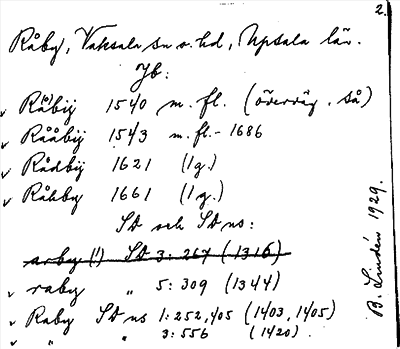 2.
Råby, Vaksala sn o. hd, Upsala län.
Jb:
Rå(å)bij 1540 m. fl. (överväg. så)
Rååbij 1543 m. fl. - 1686
Rådbij 1621 (1 g.)
Råhby 1661 (1 g.)
SD och SD ns:
arby (!) SD 3: 267 (1316)
raby " 5: 309 (1344)
Raby SD ns 1: 252, 405 (1403, 1405)
" " 3: 556 (1420).
B. Lindén 1929.